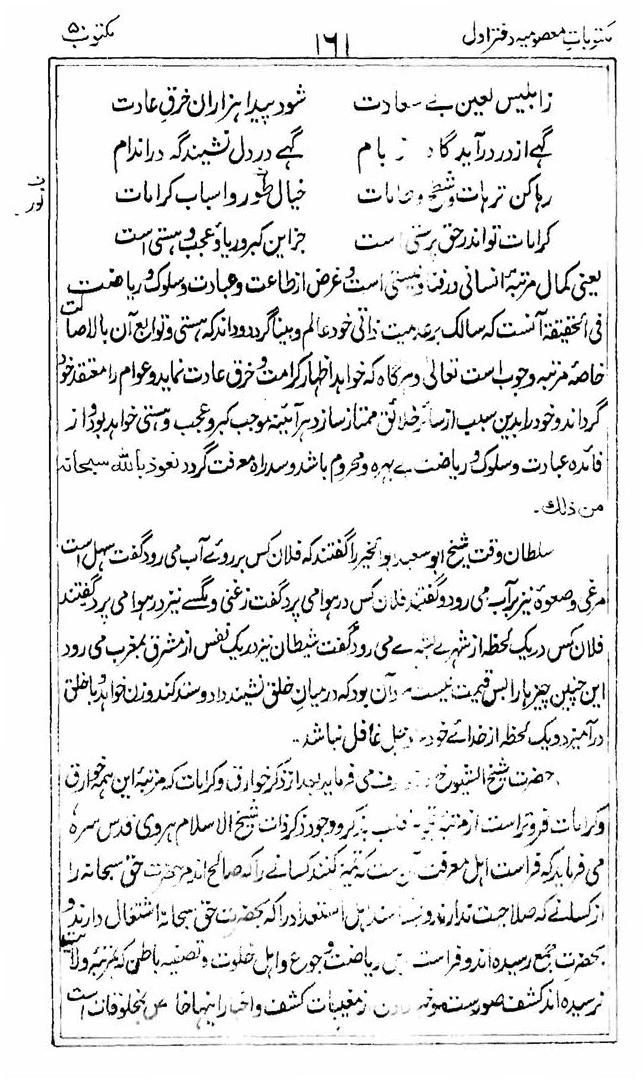 مکتوبات معصومیہ دفتر اول ۱۶۱ مکتوب ۵۰
ز ابلیس لعین بے سعادت شود پیدا ہزاران خرق عادت
گہے از در درآید گاہ از بام گہے در دل نشیند گہ در اندام
رہا کن ترہات و شطح و طامات خیال طور و اسباب کرامات
کرامات تو اندر حق پرستی است جز این کبر و ریا و عجب و ہستی است
یعنی کمال مرتبۂ انسانی در فنا و نیستی است و غرض از طاعت و عبادت و سلوک و ریاضت
فی الحقیقۃ آنست کہ سالک بر عدمیت ذاتی خود عالم و بینا گردد و داند کہ ہستی و توابع آن بالاصالت
خاصہ مرتبہ وجوب است تعالی و ہر گاہ کہ خواہد اظہار کرامت و خرق عادت نماید و عوام را معتقد خود
گرداند و خود را بدین سبب از سائر خلائق ممتاز سازد ہر آئینہ موجب کبر و عجب و ہستی خواہد بود و از
فائدہ عبادت و سلوک و ریاضت بے بہرہ و محروم باشد و سد راہ معرفت گردد نعوذ باللہ سبحانہ
من ذلك۔
سلطان وقت شیخ ابو سعید ابو الخیر را گفتند کہ فلان کس بر روئے آب می رود گفت سہل است
مرغی و صعوۂ نیز بر آب می رود و گفتند فلان کس در ہوا می پرد گفت زغنی و مگسے نیز در ہوا می پرد گفتند
فلان کس در یک لحظہ از شہرے بشہرے می رود گفت شیطان نیز در یک نفس از مشرق بمغرب می رود
این چنین چیزہا را بس قیمت نیست مرد آن بود کہ در میان خلق نشیند و داد و ستد کند و زن خواہد و با خلق
در آمیزد و یک لحظہ از خدائے خود عز و جل غافل نباشد۔
حضرت شیخ الشیوخ در عوارف می فرماید بعد از ذکر خوارق و کرامات کہ مرتبہ این ہمہ خوارق
و کرامات فروتر است از مرتبہ قلب بذکر و وجود ذکر ذات شیخ الاسلام ہروی قدس سرہ
می فرماید کہ فراست اہل معرفت آن ست کہ تمیز کنند کسانے را کہ صالح اند مر حضرت حق سبحانہ را
از کسانے کہ صلاحیت ندارند و بشناسند اہل استعداد را کہ بحضرت حق سبحانہ اشتغال دارند و
بحضرت جمع رسیدہ اند و فراست اہل ریاضت و جوع و اہل خلوت و تصفیہ باطن کہ بمرتبہ ولایت
نرسیدہ اند کشف صورست از مغیبات کشف و اخبار اینہا خاص بمخلوقات است